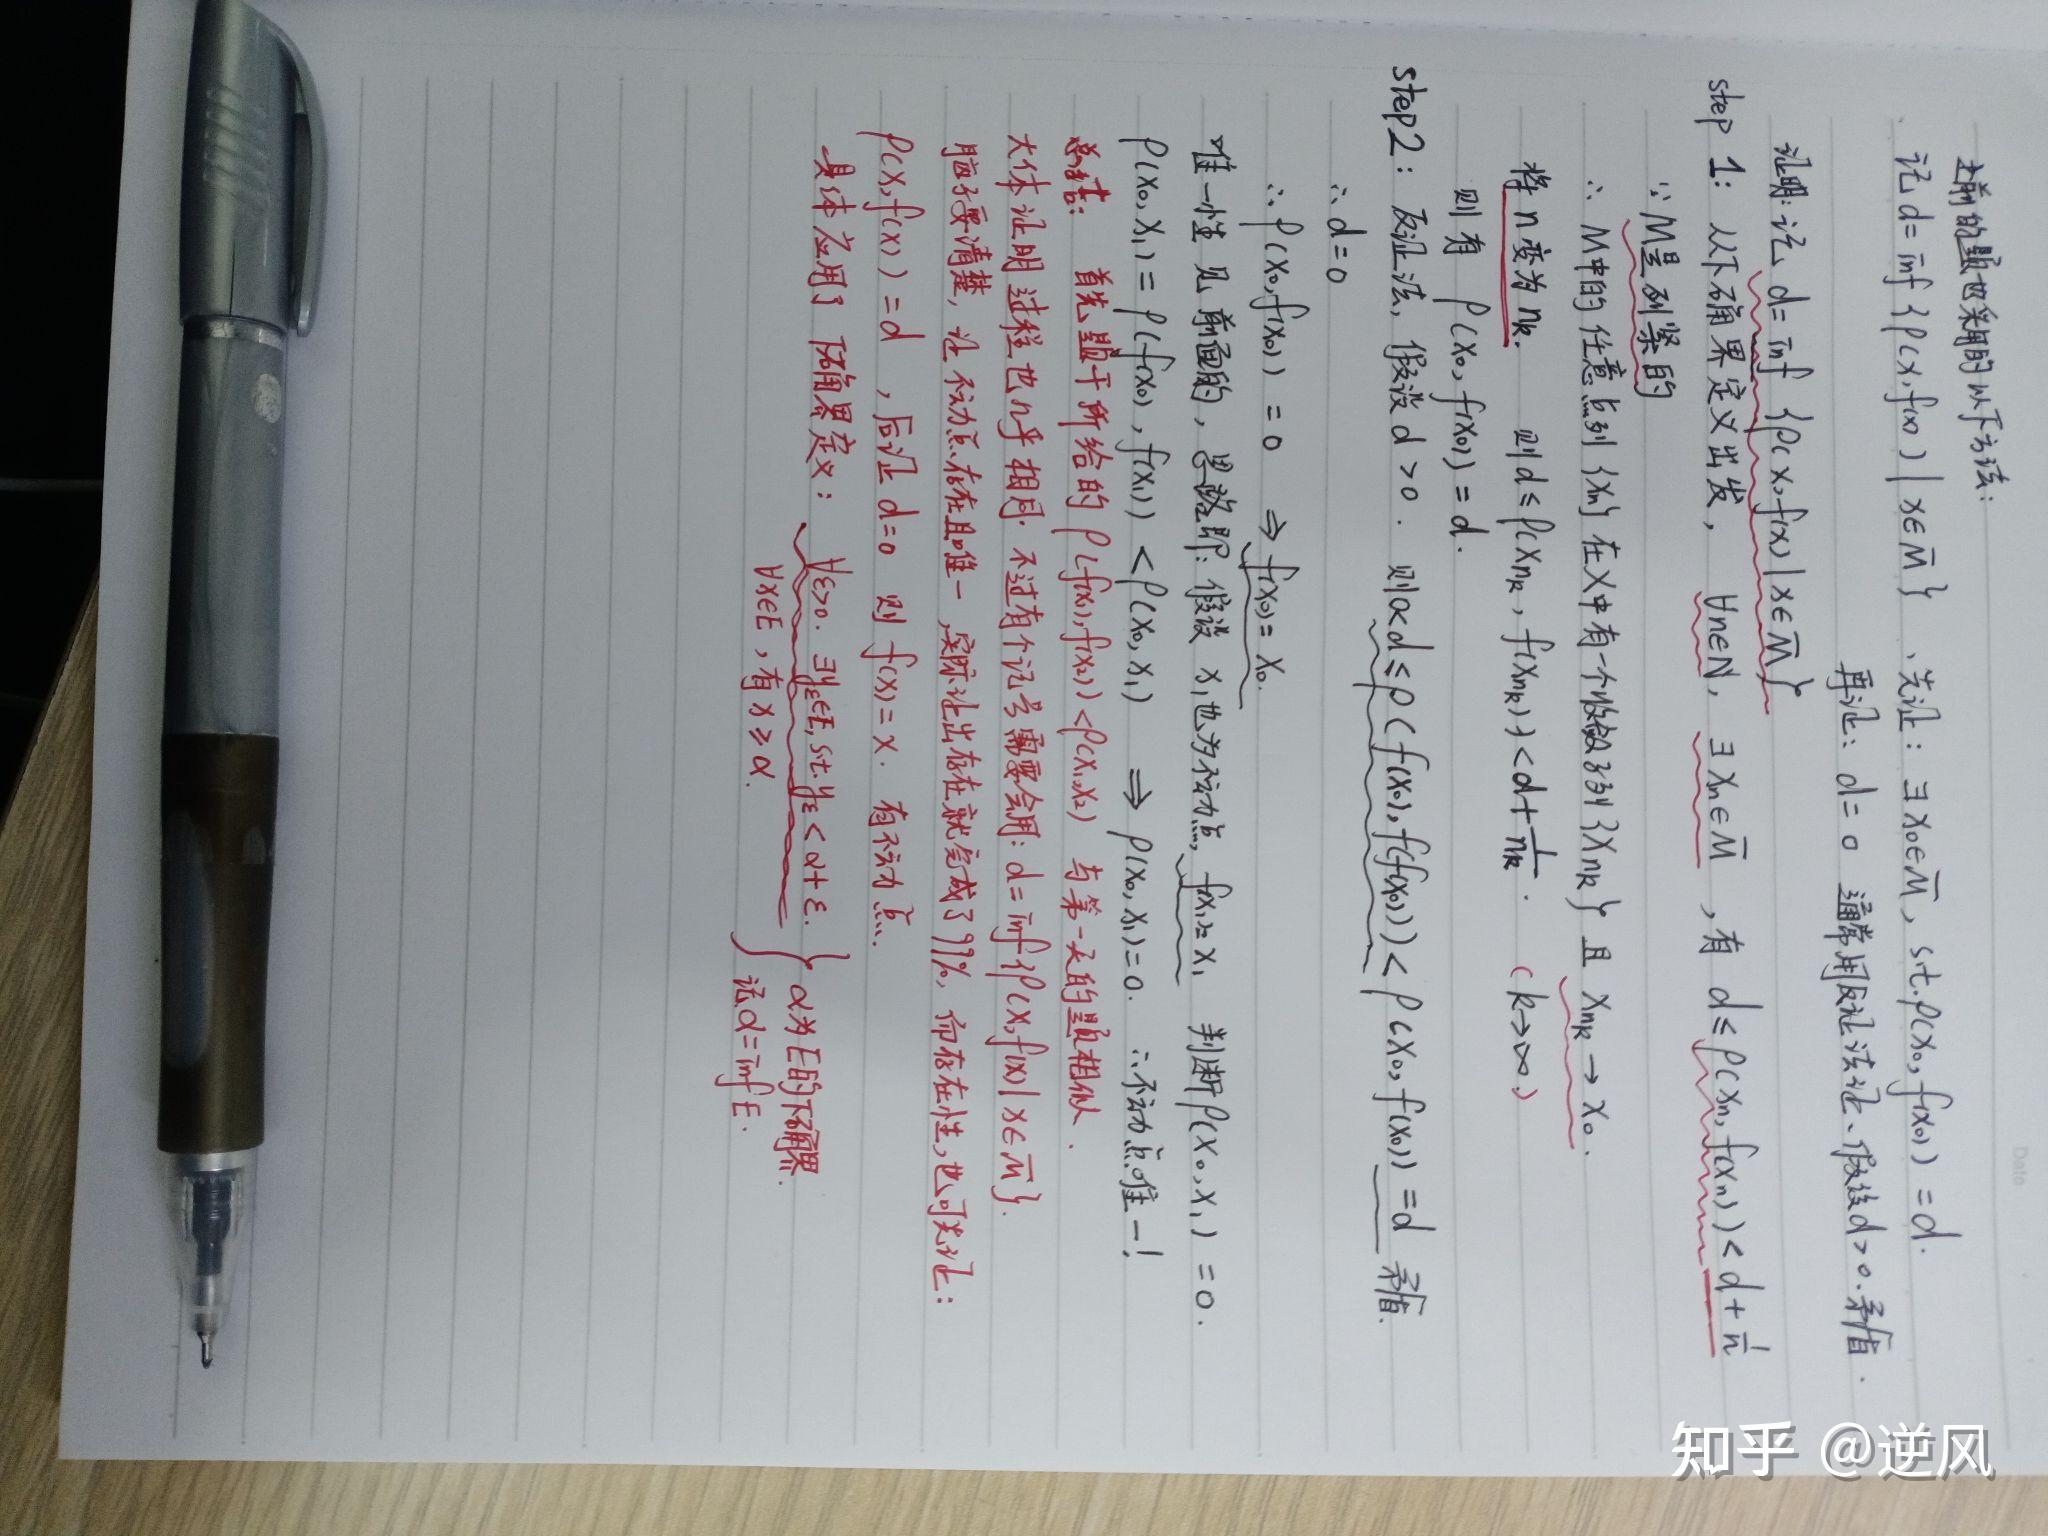 之前的题也采用的以下方法:
记 d = inf {ρ(x, f(x)) | x∈M̅}、先证: ∃x₀∈M̅, s.t. ρ(x₀, f(x₀)) = d.
再证: d = 0 通常用反证法证、假设d>0.矛盾.
证明: 记 d = inf {ρ(x, f(x)) | x∈M̅}
step 1: 从下确界定义出发, ∀n∈N, ∃xₙ∈M̅, 有 d ≤ ρ(xₙ, f(xₙ)) < d + 1/n
∵ M是列紧的
∴ M中的任意点列{xₙ}在X中有一个收敛子列{xₙₖ}且 xₙₖ → x₀.
将n变为nₖ. 则 d ≤ ρ(xₙₖ, f(xₙₖ)) < d + 1/nₖ. (k→∞)
则有 ρ(x₀, f(x₀)) = d.
step 2: 反证法, 假设 d > 0. 则 0<d ≤ ρ(f(x₀), f(f(x₀))) < ρ(x₀, f(x₀)) = d 矛盾.
∴ d = 0
∴ ρ(x₀, f(x₀)) = 0 ⇒ f(x₀) = x₀.
唯一性见前面的, 思路即: 假设 x₁也为不动点, f(x₁) = x₁ 判断ρ(x₀, x₁) = 0.
ρ(x₀, x₁) = ρ(f(x₀), f(x₁)) < ρ(x₀, x₁) ⇒ ρ(x₀, x₁) = 0. ∴不动点唯一!
总结: 首先题干所给的 ρ(f(x₁), f(x₂)) < ρ(x₁, x₂) 与第一天的题相似.
大体证明过程也几乎相同. 不过有个记号需要会用: d = inf{ρ(x, f(x)) | x∈M̅}.
脑子要清楚, 证不动点存在且唯一, 实际证出存在就完成了99%, 而存在性, 也可先证:
ρ(x, f(x)) = d , 后证 d = 0 则 f(x) = x. 有不动点.
具体应用了下确界定义: ∀ε>0. ∃yε∈E, s.t. yε < α + ε.
∀x∈E, 有 x ≥ α.
α为E的下确界.
记α = inf E.
Date
知乎 @逆风